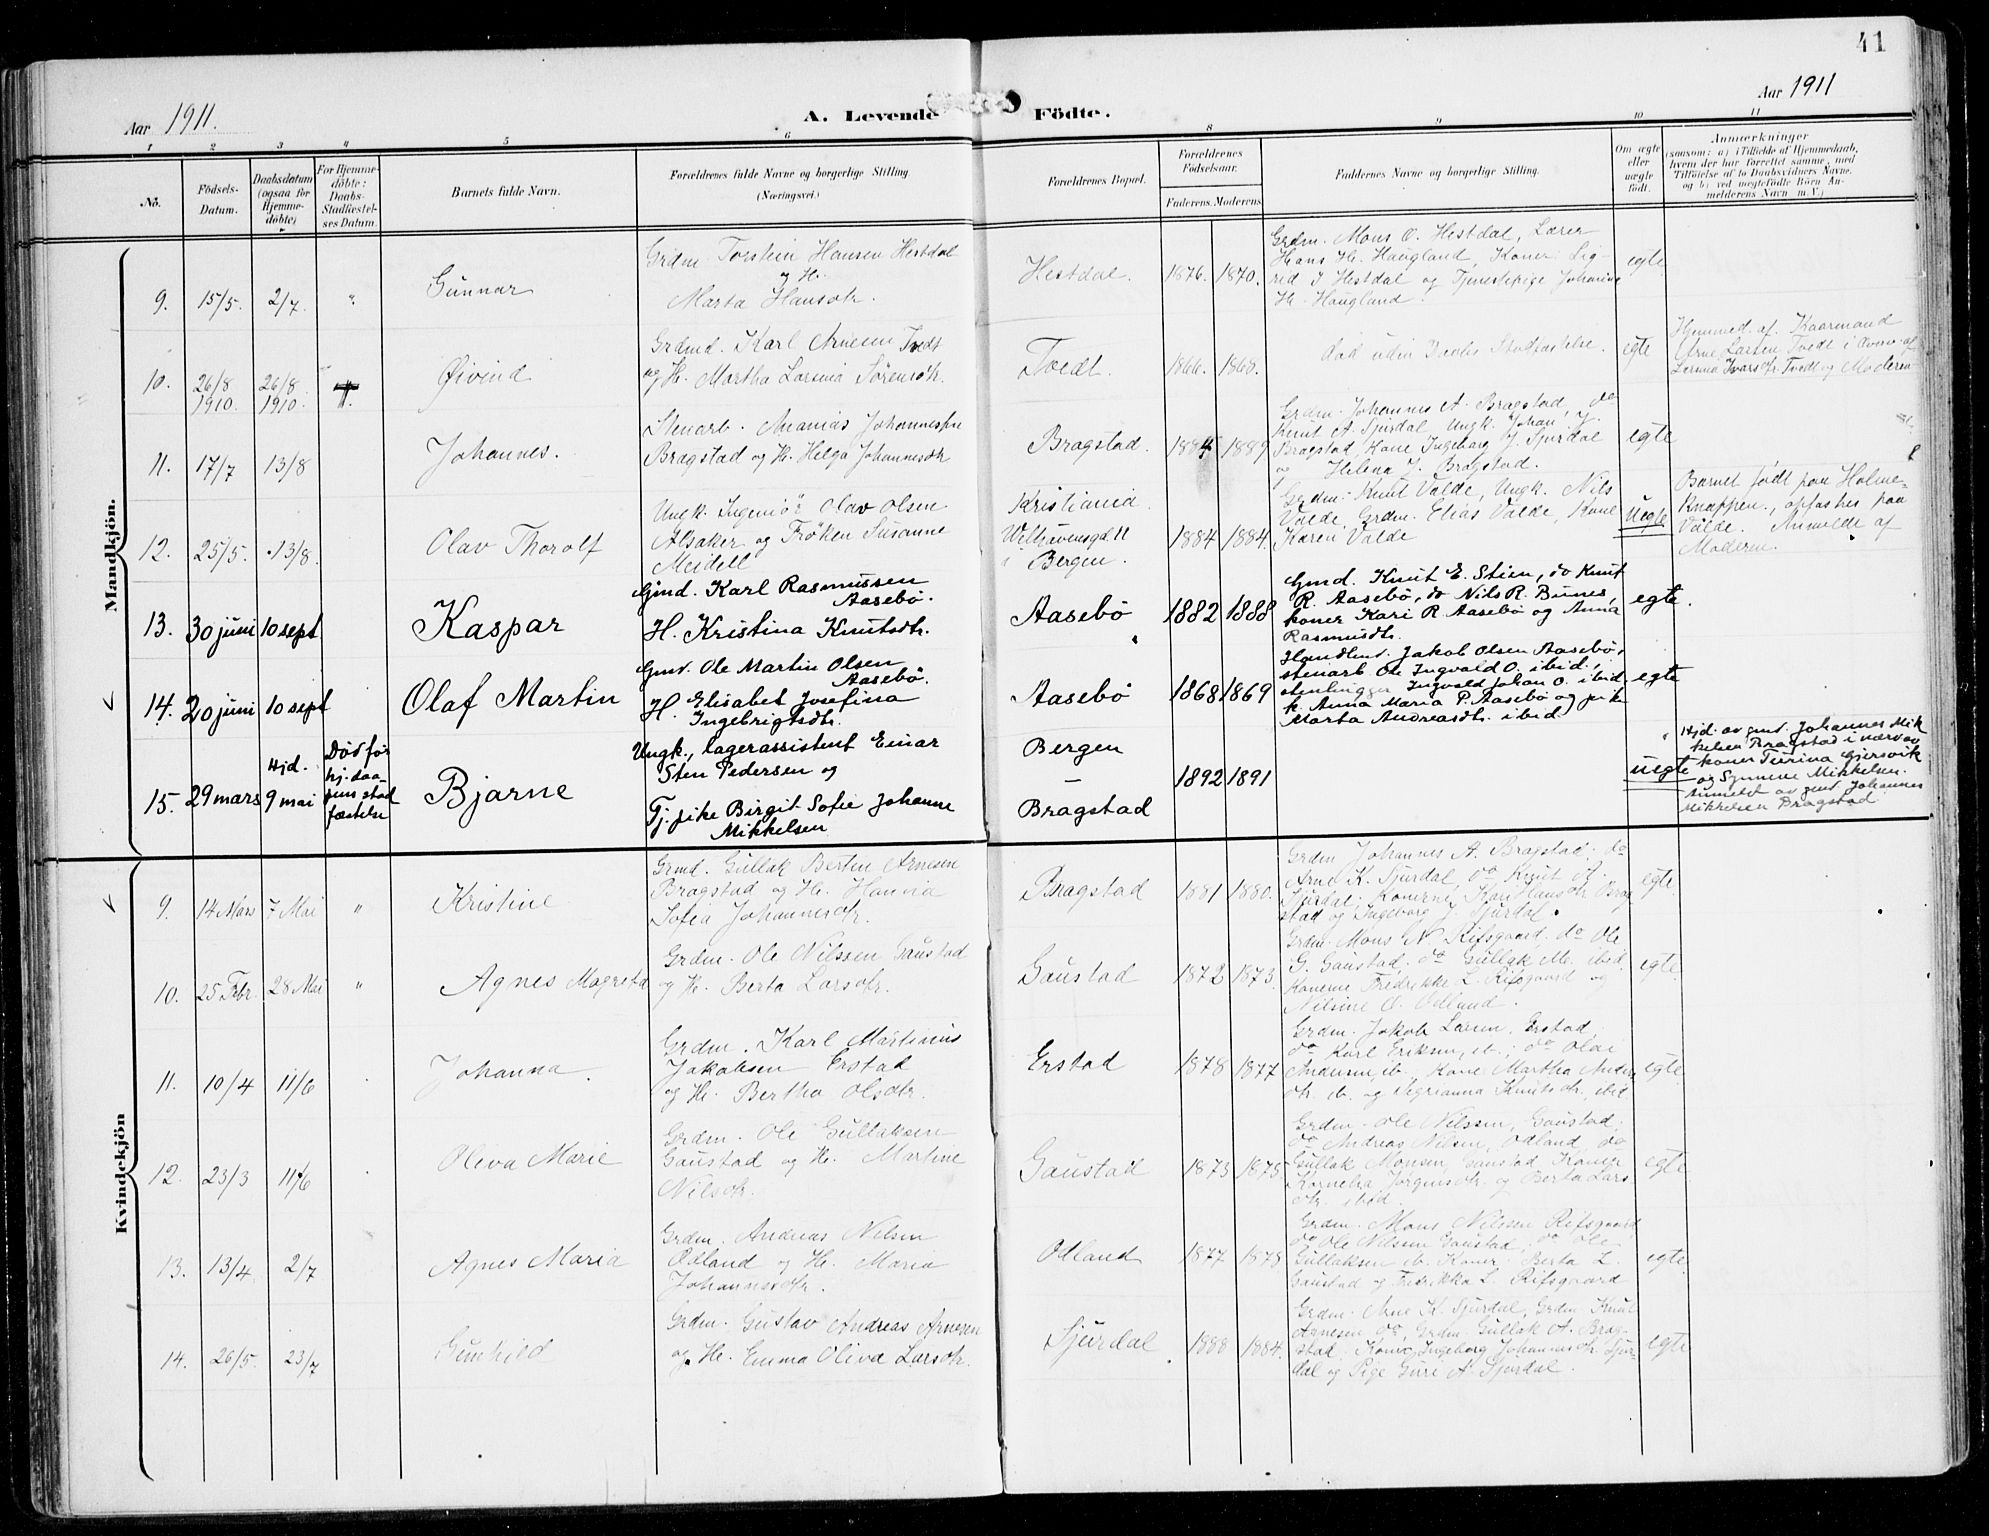 41
Aar 1911.
A. Levende Födte.
Aar 1911
1 2 3 4 5 6 8 9 10 11
No.
Födsels-
Datum.
Daabsdatum
(ogsaa for
Hjemme-
döbte)
For Hjemme-
döbte:
Daabs-
Stadfæstel-
ses Datum.
Barnets fulde Navn.
Forældrenes fulde Navne og borgerlige Stilling.
(Næringsvei.)
Forældrenes Bopæl.
Forældrenes
Födselsaar.
Faderens. Moderens.
Faddernes Navne og borgerlige Stilling.
Om ægte
eller
uægte
födt.
Anmærkninger
(saasom: a) i Tilfælde af Hjemmedaab,
hvem der har forrettet samme, med
Tilföielse af to Daabsvidners Navne,
og b) ved uegtefödte Börn An-
melderens Navn m. V.)
Mandkjön.
9. 15/5. 2/7. "
Gunnar
Grdm Torstein Hansen Hestdal
og H.
Marta Hansdtr.
Hestdal.
1876. 1870.
Grdm. Mons O. Hestdal, Lærer
Hans H. Haugland, Koner Sig-
rid J Hestdal og Tjenestepige Johanna
H. Haugland
egte
10. 26/8 1910. 26/8 1910.
Øivind
Grdmd. Karl Arnesen Tvedt
og H. Martha Larsina Sörensdtr.
Tvedt.
1866. 1868.
død uden Daabs Stadfæstelse.
egte
Hjemmed. af Kaarmand
Arne Larsen Tvedt i Overv. af
Larsina Ivarsdtr Tvedt og Moderen
11. 17/7 13/8
Johannes.
Stenarb. Ananias Johannesen
Bragstad og H. Helga Johannesdtr
Bragstad.
1884 1889
Grdm. Johannes A. Bragstad, do
Knut A. Sjurdal Ungk. Johan J.
Bragstad, Kone Ingeborg J. Sjurdal
og Helena J. Bragstad.
egte
12. 25/5. 13/8.
Olav Thorolf
Ungk. Ingeniör Olav Olsen
Alsaker og Fröken Susanne
Meidell
Kristiania
Welhavensgd. 11
i Bergen.
1884 1884.
Grdm. Knut Valde, Ungk. Nils
Valde, Grdm. Elias Valde, Kone
Karen Valde
Uegte
Barnet født paa Holme-
Knappen., opfostres paa
Valde. Anmeldt af
Moderen.
13. 30 juni 10 sept
Kaspar
Gmd. Karl Rasmussen
Aasebö.
H. Kristina Knutsdtr.
Aasebö
1882 1888
Gmd. Knut E. Stien, do Knut
R. Aasebö, do Nils R. Bines,
koner Kari R Aasebö og Anna
Rasmusdtr.
egte.
14. 20 juni 10 sept
Olaf Martin
Gmd. Ole Martin Olsen
Aasebö.
H. Elisabet Josefina
Ingebrigtsdtr.
Aasebö
1868 1869
Handlend. Jakob Olsen Aasebö,
stenarb Ole Ingvald O. ibid.,
stenhugger Ingvald Johan O. ibid.
k. Anna Maria P. Aasebö og pike
Marta Andreasdtr. ibid
egte
15. 29 mars
Hjd.
9 mai
Död før
hj. daa-
pens stad
fæstelse
Bjarne
Ungk., lagerassistent Einar
Sten Pedersen og
Tj. pike Birgit Sofie Johanne
Mikkelsen
Bergen
—
Bragstad
1892 1891
uegte
Hjd. av gmd. Johannes Mik
kelsen Bragstad i nærv av
koner Terrina Gjersvik
og Synneve Mikkelsen.
Anmeldt av gmd. Johannes
Mikkelsen Bragstad
Kvindekjön
9. 14 Mars 7 Mai "
Kristine
Grmd. Gullak Berten Arnesen
Bragstad og H. Hanna
Sofia Johannesdtr.
Bragstad
1881 1880.
Grdm Johannes A. Bragstad, do
Arne K. Sjurdal, do Knut A.
Sjurdal. Konerne Kari Hansdtr Brag
stad og Ingeborg J. Sjurdal.
egte
10. 25 Febr. 28 Mai "
Agnes Magreta
Grdm. Ole Nilssen Gaustad
og H. Berta Larsdtr.
Gaustad
1872 1873.
Grdm. Mons N. Rifsgaard. do Ole
G. Gaustad, do Gullak M. ibid,
Konerne Fredrikke L. Rifsgaard og
Nilsine O. Odland.
egte
11. 10/4 11/6
Johanna
Grdm. Karl Martinius
Jakobsen Erstad
og H. Bertha Olsdtr.
Erstad
1878 1877
Grdm. Jakob Larsen Erstad,
do Karl Eriksen, ib.; do Olai
Andersen, ib, Kone Martha Anders
dtr. ib. og Sigrianna Knutsdtr. ibid
egte
12. 23/3 11/6
Oliva Marie
Grdm. Ole Gullaksen
Gaustad og H. Martine
Nilsdtr.
Gaustad
1873 1875.
Grdm. Ole Nilssen, Gaustad,
do Andreas Nilsen, Odland, do
Gullak Monsen, Gaustad Koner
Kornelia Jörgensdtr. og Berta Lars
dtr. ibid.
egte
13. 13/4 2/7
Agnes Maria
Grdm. Andreas Nilsen
Odland og H. Maria
Johannesdtr.
Odland
1877 1878
Grdm. Mons Nilssen Rifsgaard,
do Ole Nilssen Gaustad, do Ole
Gullaksen ib. Koner Berta L.
Gaustad og Fredrikka L. Rifsgaard
egte
14. 26/5. 23/7
Gunhild
Grdm. Gustav Andreas Arnesen
og H. Emma Oliva Larsdtr.
Sjurdal
1888 1884.
Grdm. Arne K. Sjurdal, Grdm Knut
Arnesen do, Grdm Gullak A. Brag-
stad. Kone Ingeborg Johannesdtr. Sjur-
dal og Pige Guri A. Sjurdal.
egte